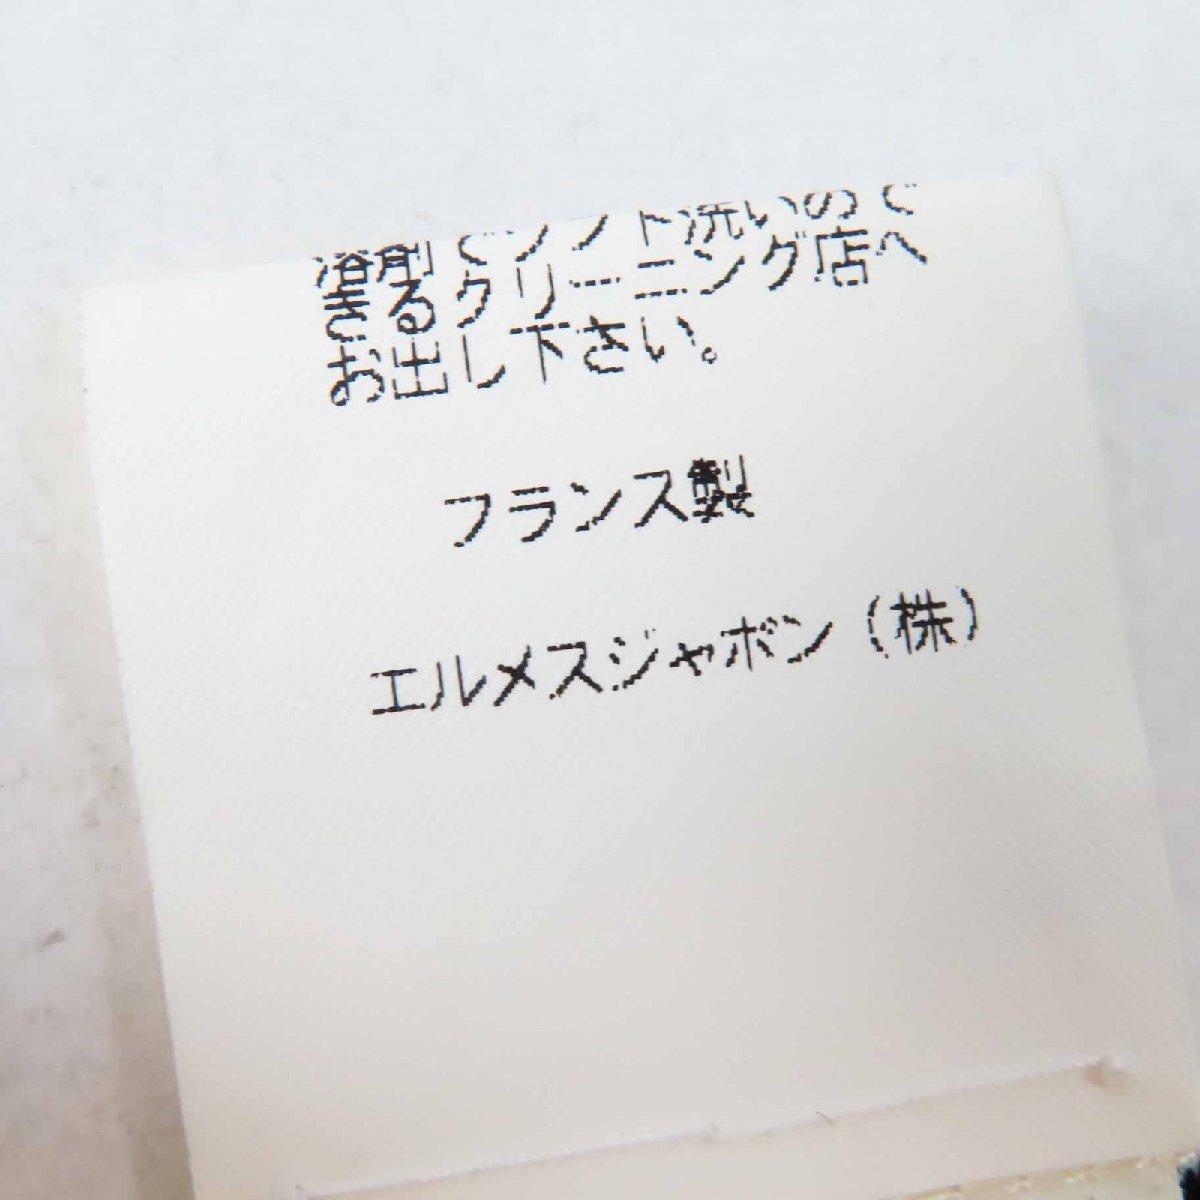 溶剤でソフト洗いので
きるクリーニング店へ
お出し下さい。
フランス製
エルメスジャポン(株)